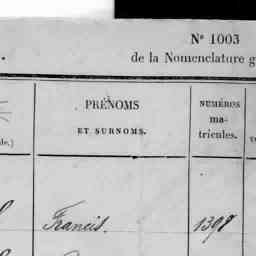 Nº 1003
de la Nomenclature g
PRÉNOMS
ET SURNOMS.
NUMÉROS
ma-
tricules.
de.)
Francis. 1398